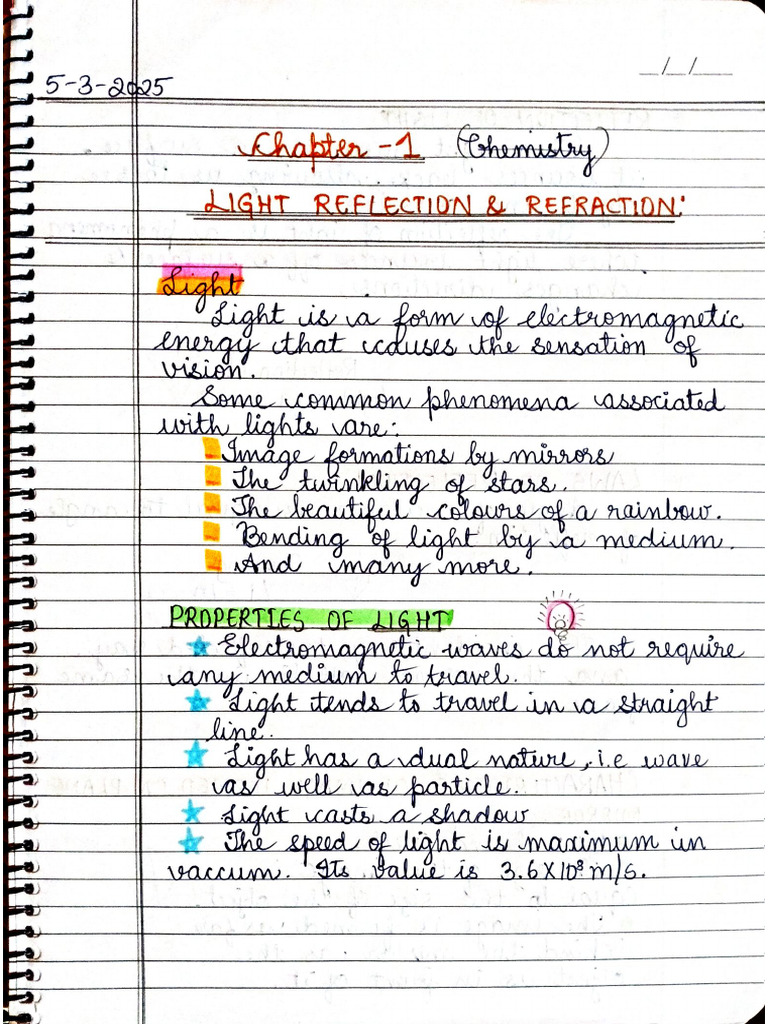 _/_/__
5-3-2025
Chapter-1 (Chemistry)
LIGHT REFLECTION & REFRACTION:
Light
Light is a form of electromagnetic
energy that causes the sensation of
vision.
Some common phenomena associated
with lights are:
Image formations by mirrors
The twinkling of stars.
The beautiful colours of a rainbow.
Bending of light by a medium.
And many more.
PROPERTIES OF LIGHT
Electromagnetic waves do not require
any medium to travel.
Light tends to travel in a straight
line.
Light has a dual nature, i.e wave
as well as particle.
Light casts a shadow
The speed of light is maximum in
vaccum. Its value is 3.6×10⁸ m/s.